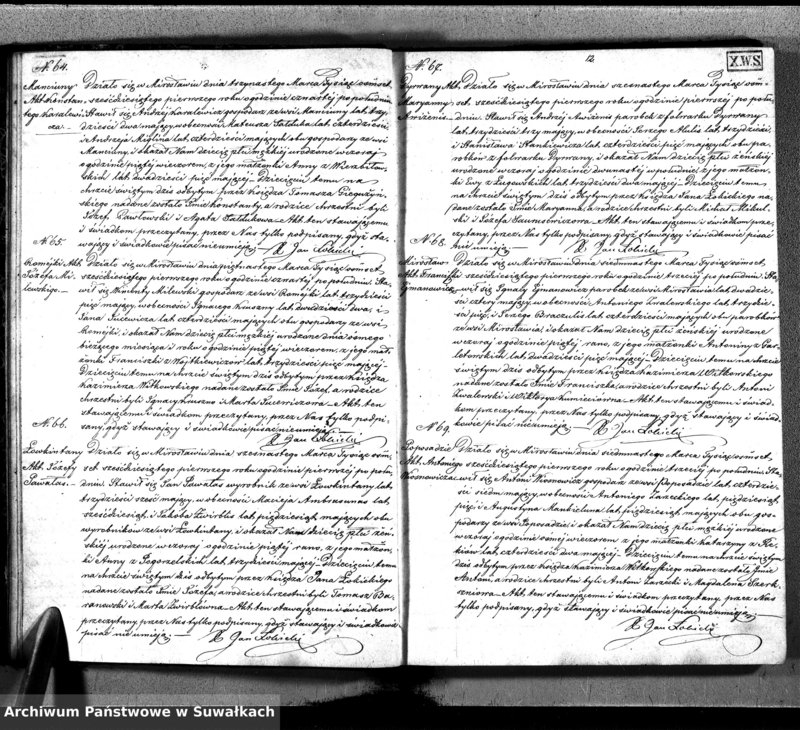 N. 64.
Manciuny
Akt Konstan-
tego Karale-
Działo się w Mirosławiu dnia trzynastego Marca Tysiąc ośmset
sześćdziesiątego pierwszego roku o godzinie czwartej po południu
Stawił się Andrzej gospodarz ze wsi Manciuny lat trzy-
dzieści dwa mający, w obecności Mateusza lat czterdzieści
i Andrzeja lat czterdzieści mających obu gospodarzy ze wsi
Manciuny, i okazał Nam dziecię płci męzkiej urodzone wczoraj
o godzinie piątej wieczorem, z jego małżonki Anny z Wierzbiłow-
skich lat dwadzieścia pięć mającej. Dziecięciu temu na
chrzcie świętym dziś odbytym przez Księdza Tomasza
nadane zostało Imie Konstanty, a rodzice chrzestni byli
Józef Pawłowski i Agata Akt ten stawającemu
i świadkom przeczytany, przez Nas tylko podpisany, gdyż sta-
wający i świadkowie pisać nie umieją.
X. Jan
N. 65.
Romejki Akt
Józefa Mi-
lewskiego
Działo się w Mirosławiu dnia piętnastego Marca Tysiąc ośmset
sześćdziesiątego pierwszego roku o godzinie czwartej po południu. Sta-
wił się Wincenty Milewski gospodarz ze wsi Romejki, lat trzydzieści
pięć mający, w obecności Ignacego lat dwadzieścia dwa, i
Jana lat czterdzieści mających obu gospodarzy ze wsi
Romejki, i okazał Nam dziecię płci męzkiej urodzone dnia ósmego
bieżącego miesiąca i roku o godzinie piątej wieczorem, z jego mał-
żonki Franciszki z Wojtkiewiczów lat trzydzieści mającej.
Dziecięciu temu na chrzcie świętym dziś odbytym przez Księdza
Kazimierza Witkowskiego nadane zostało Imie Józef, a rodzice
chrzestni byli Ignacy i Marta Akt ten
stawającemu i świadkom przeczytany, przez Nas tylko podpi-
sany, gdyż stawający i świadkowie pisać nie umieją.
X. Jan
N. 66.
Lewkintany
Akt Józefy
Działo się w Mirosławiu dnia szesnastego Marca Tysiąc ośm-
set sześćdziesiątego pierwszego roku o godzinie pierwszej po połu-
dniu. Stawił się Jan wyrobnik ze wsi Lewkintany lat
trzydzieści sześć mający, w obecności Macieja lat
sześćdziesiąt, i Jakóba lat pięćdziesiąt mających obu
wyrobników ze wsi Lewkintany, i okazał Nam dziecię płci żeń-
skiej urodzone wczoraj o godzinie piątej rano, z jego małżon-
ki Anny z Pogorzelskich lat trzydzieści mającej. Dziecięciu temu
na chrzcie świętym dziś odbytym przez Księdza Jana
nadane zostało Imie Józefa, a rodzice chrzestni byli Tomasz Ba-
ranowski i Marta Akt ten stawającemu i świadkom
przeczytany, przez Nas tylko podpisany, gdyż stawający i świadkowie
pisać nie umieją.
X. Jan
12
X.W.S.
N. 67.
Dywany Akt
Maryanny
Działo się w Mirosławiu dnia szesnastego Marca Tysiąc ośm-
set sześćdziesiątego pierwszego roku o godzinie pierwszej po połu-
dniu. Stawił się Andrzej parobek z folwarku
lat trzydzieści trzy mający, w obecności Jerzego lat trzydzieści
i Stanisława Stankiewicza lat czterdzieści pięć mających obu pa-
robków z folwarku i okazał Nam dziecię płci żeńskiej
urodzone wczoraj o godzinie dwunastej w południe, z jego małżon-
ki Ewy z lat trzydzieści dwa mającej. Dziecięciu temu
na chrzcie świętym dziś odbytym przez Księdza Jana na-
dane zostało Imie Maryanna, a rodzice chrzestni byli Michał
i Józefa Akt ten stawającemu i świadkom prze-
czytany, przez Nas tylko podpisany, gdyż stawający i świadkowie pisać
nie umieją.
X. Jan
N. 68.
Mirosław
Akt Franciszki
Działo się w Mirosławiu dnia siedmnastego Marca Tysiąc ośmset
sześćdziesiątego pierwszego roku o godzinie trzeciej po południu. Sta-
wił się Ignacy parobek ze wsi Mirosławia lat dwadzie-
ścia cztery mający, w obecności Antoniego lat trzydzie-
ści pięć, i Jerzego lat czterdzieści mających obu parobków
ze wsi Mirosławia, i okazał Nam dziecię płci żeńskiej urodzone
wczoraj o godzinie piątej rano, z jego małżonki Antoniny z
lat dwadzieścia pięć mającej. Dziecięciu temu na chrzcie
świętym dziś odbytym przez Księdza Kazimierza Witkowskiego
nadane zostało Imie Franciszka, a rodzice chrzestni byli Antoni
i Wiktorya Akt ten stawającemu i świad-
kom przeczytany, przez Nas tylko podpisany, gdyż stawający i świad-
kowie pisać nie umieją.
X. Jan
N. 69.
Poposadzie
Akt Antoniego
Działo się w Mirosławiu dnia siedmnastego Marca Tysiąc ośmset
sześćdziesiątego pierwszego roku o godzinie trzeciej po południu. Sta-
wił się Antoni gospodarz ze wsi Poposadzie lat czterdzie-
ści siedm mający, w obecności Antoniego lat pięćdziesiąt
pięć, i Augustyna lat pięćdziesiąt mających obu gos-
podarzy ze wsi Poposadzie i okazał Nam dziecię płci męzkiej urodzone
wczoraj o godzinie ósmej wieczorem, z jego małżonki Katarzyny z
lat czterdzieści dwa mającej. Dziecięciu temu na chrzcie świętym
dziś odbytym przez Księdza Kazimierza Witkowskiego nadane zostało Imie
Antoni, a rodzice chrzestni byli Antoni i Magdalena
Akt ten stawającemu i świadkom przeczytany, przez Nas
tylko podpisany, gdyż stawający i świadkowie pisać nie umieją.
X. Jan
Archiwum Państwowe w Suwałkach